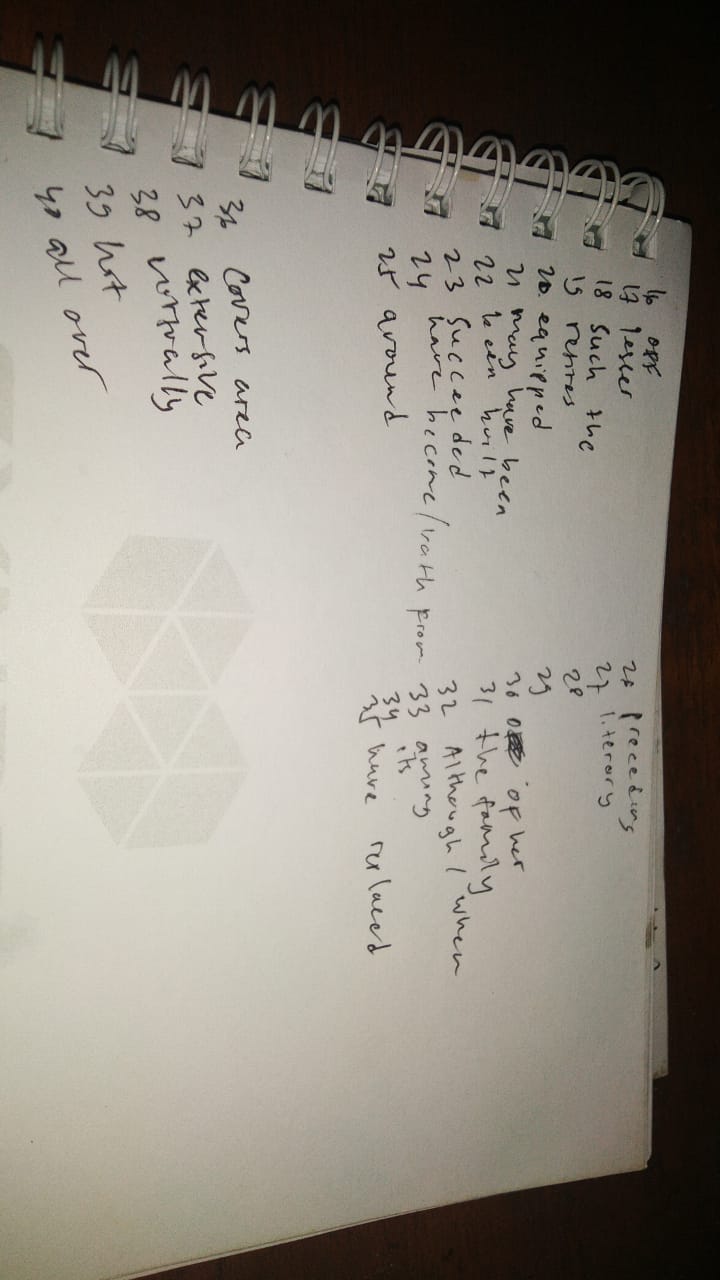 16 off
17 lesser
18 Such the
19 retires
20. equipped
21 may have been
22 been built
23 Succeeded
24 have become / hath from
25 around
26 preceding
27 literary
28
29
30 of her
31 the family
32 Although / when
33 among
34 its
35 have replaced
36 Covers area
37 extensive
38 virtually
39 hot
40 all over